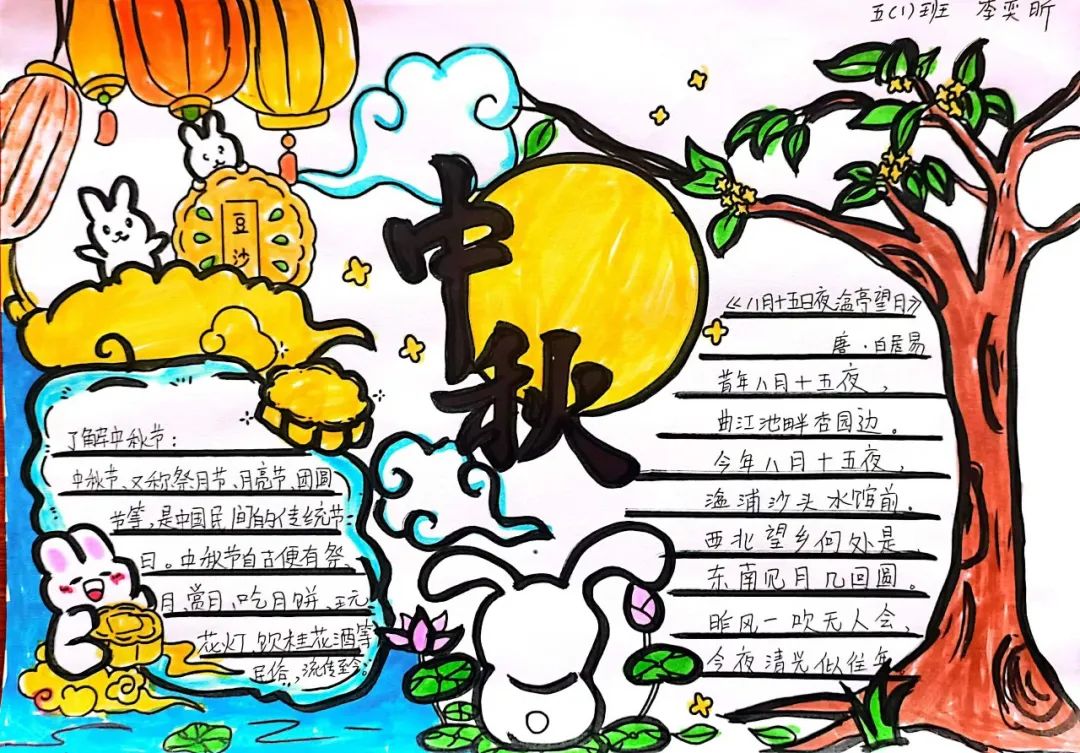 五(1)班 李奕昕
豆沙
中秋
了解中秋节：
中秋节、又称祭月节、月亮节、团圆
节等，是中国民间的传统节
日。中秋节自古便有祭、
月、赏月、吃月饼、玩
花灯、饮桂花酒等
民俗，流传至今。
《八月十五日夜湓亭望月》
唐·白居易
昔年八月十五夜，
曲江池畔杏园边。
今年八月十五夜，
湓浦沙头水馆前。
西北望乡何处是，
东南见月几回圆。
昨风一吹无人会，
今夜清光似往年